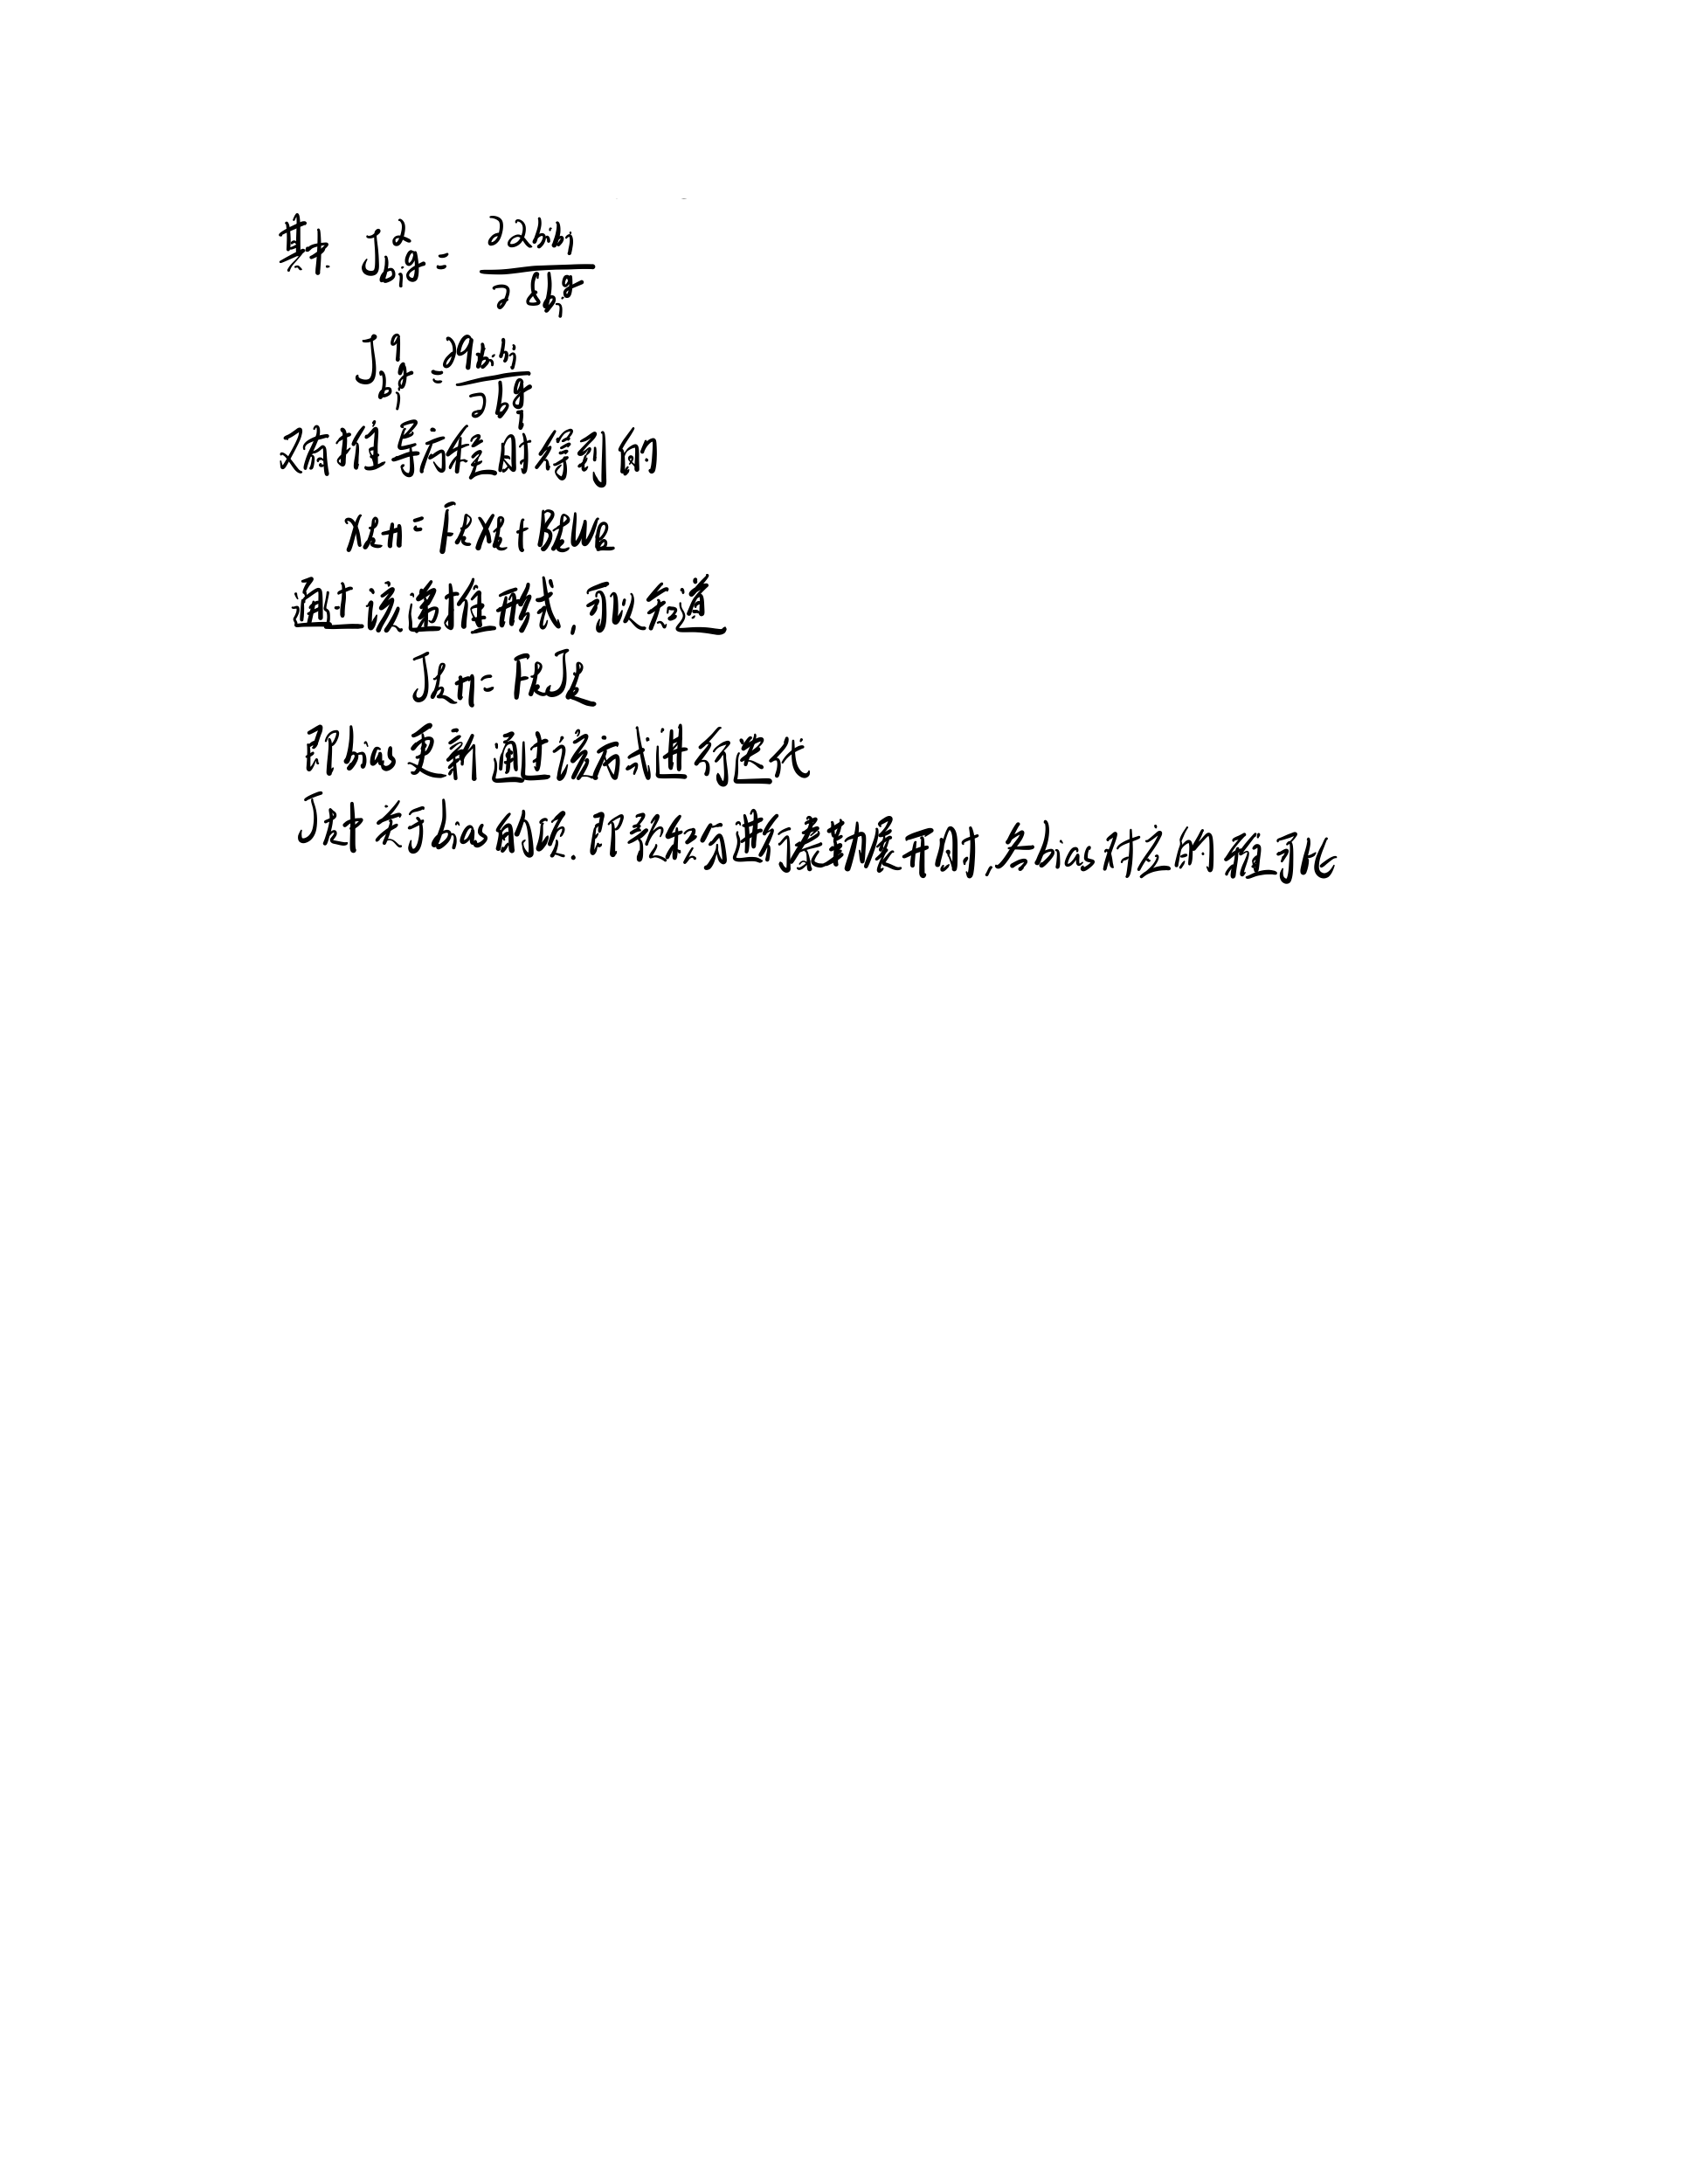 其中 J^α_{b_i^g} = ∂α_{b_i b_j} / ∂δb_i^g
J^q_{b_i^g} = ∂q_{b_i b_j} / ∂b_i^g
又有推导方程时得到的
x_{k+1} = F_k x_k + B_k w_k
通过该递推形式,可以知道
J_{k+1} = F_k J_k
即bias更新通过该方式进行迭代
J_k中关于bias的项.即预积分进行泰勒展开时,各bias对应的雅可比